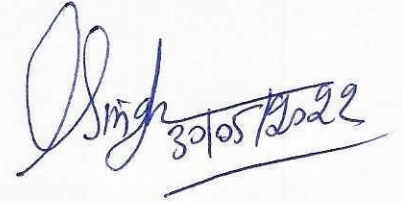 Singh
30/05/2022